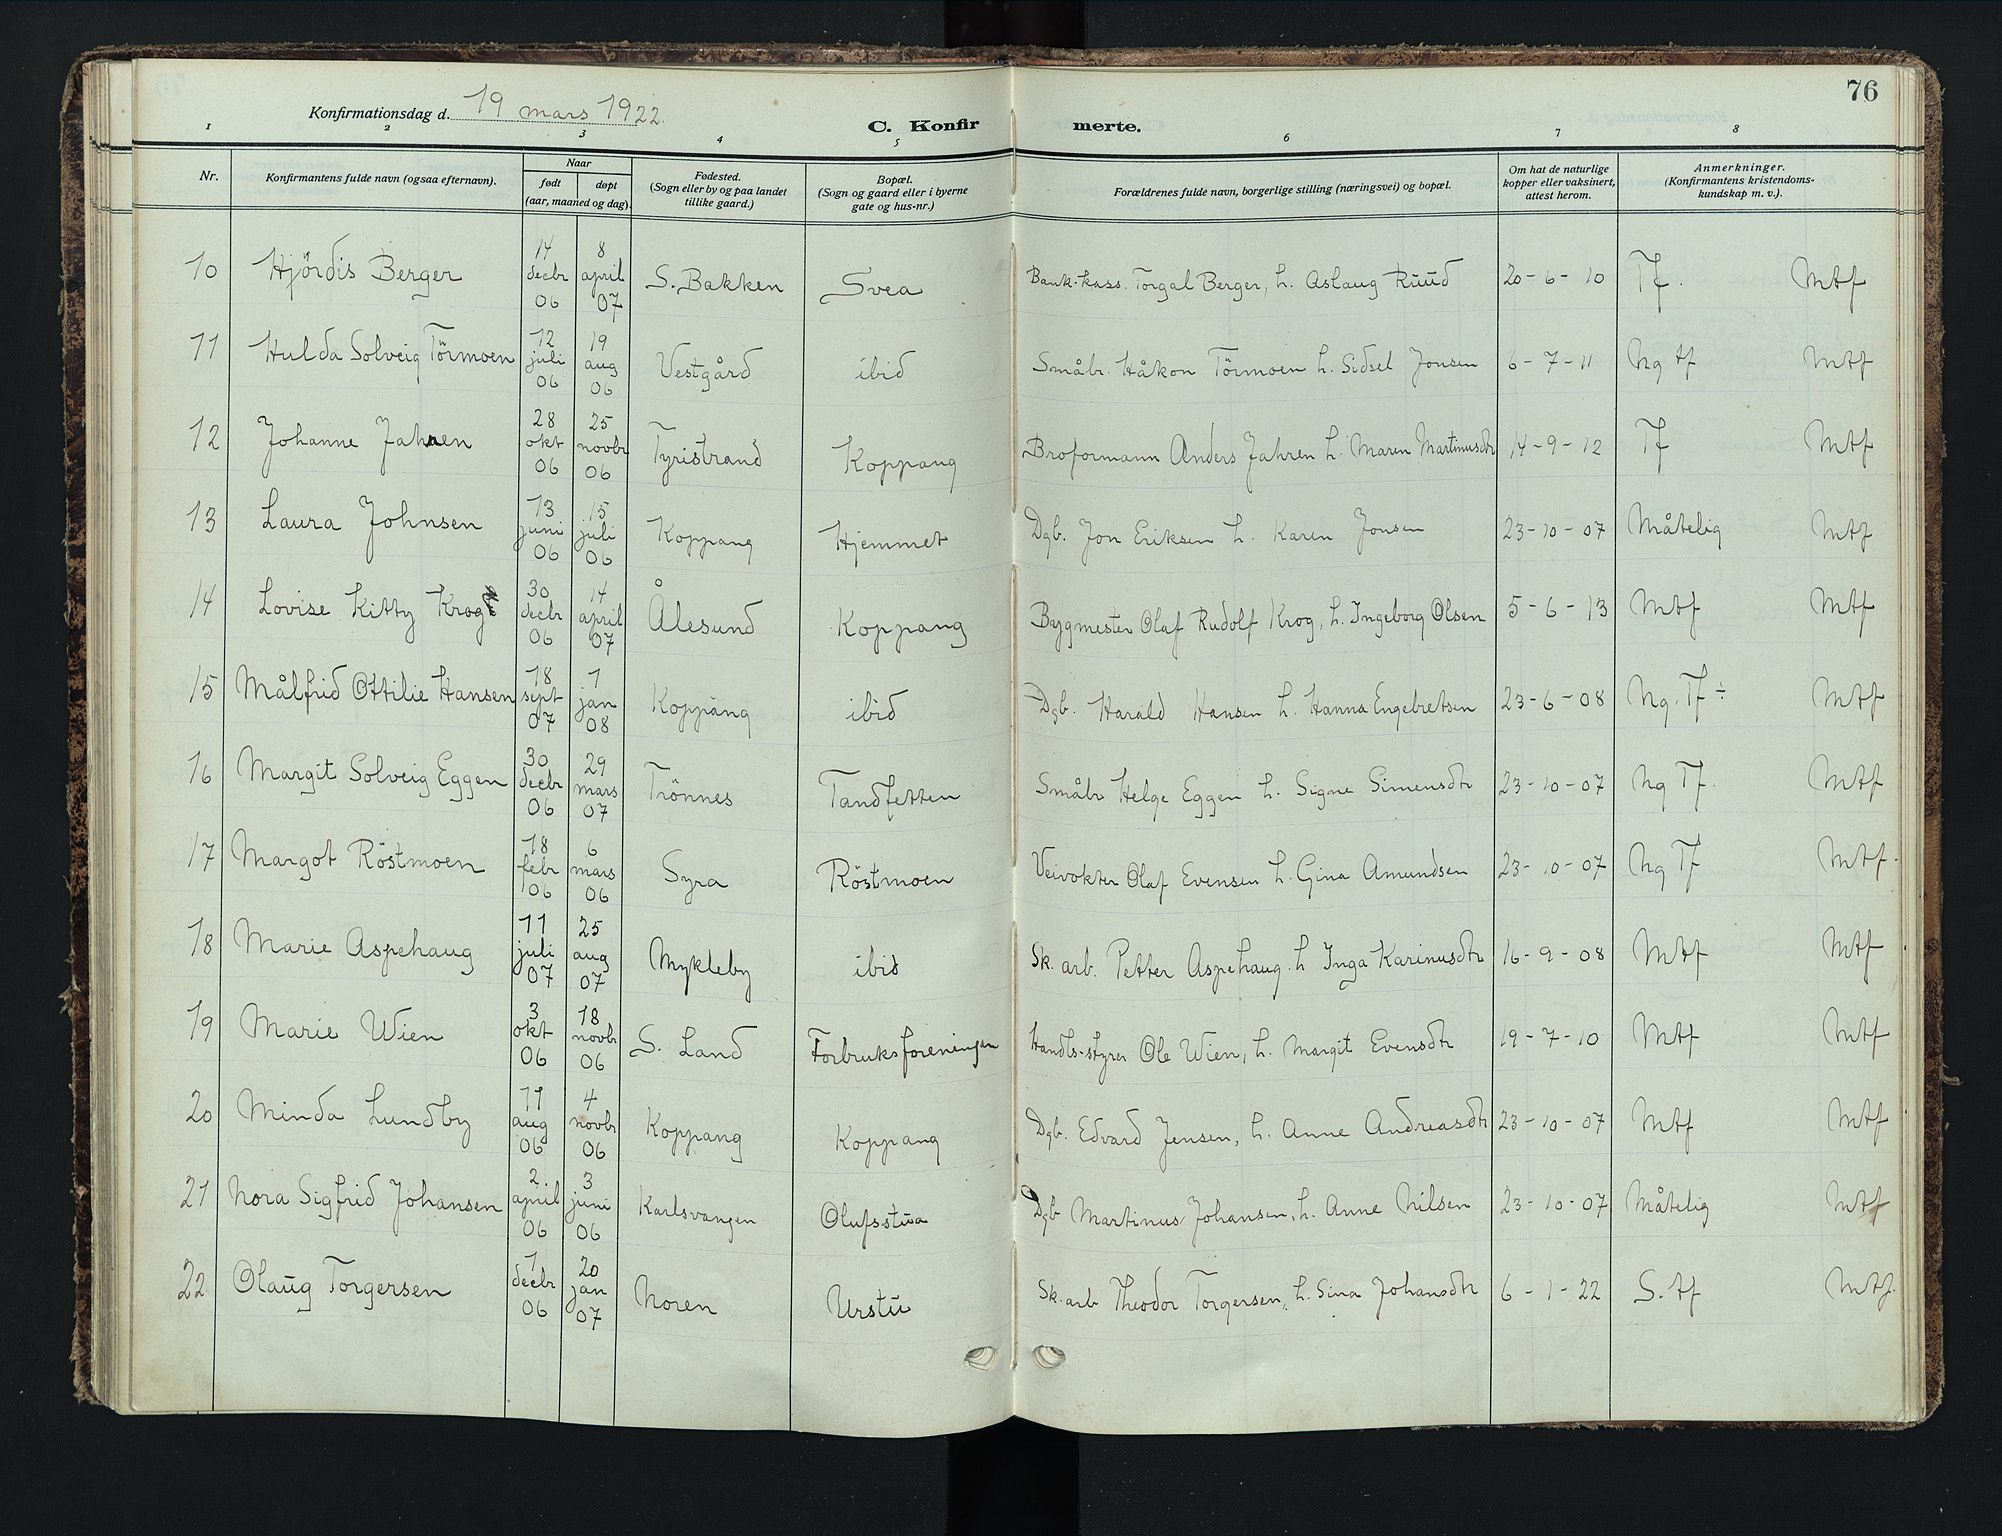 76
Konfirmationsdag d. 19 mars 1922.
C. Konfir merte.
1 2 3 4 5 6 7 8
Nr. Konfirmantens fulde navn (ogsaa efternavn). Naar født døpt (aar, maaned og dag). Fødested. (Sogn eller by og paa landet tillike gaard.) Bopæl. (Sogn og gaard eller i byerne gate og hus-nr.) Forældrenes fulde navn, borgerlige stilling (næringsvei) og bopæl. Om hat de naturlige kopper eller vaksinert, attest herom. Anmerkninger. (Konfirmantens kristendoms-kundskap m. v.).
10 Hjördis Berger 14 decbr 06 8 april 07 S. Bakken Svea Bank-kass. Torgal Berger, h. Aslaug Ruud 20-6-10 Tf. Mtf
11 Hulda Solveig Törmoen 12 juli 06 19 aug 06 Vestgård ibid Småbr. Håkon Törmoen h. Sidsel Jonsen 6-7-11 Ng tf Mtf
12 Johanne Jahren 28 okt 06 25 novbr 06 Tyristrand Koppang Broformann Anders Jahren h. Maren Martinusdtr 14-9-12 Tf Mtf
13 Laura Johnsen 13 juni 06 15 juli 06 Koppang Hjemmet Dgb. Jon Eriksen h. Karen Jonsen 23-10-07 Måtelig Mtf
14 Lovise Kitty Krog 30 decbr 06 14 april 07 Ålesund Koppang Bygmester Olaf Rudolf Krog, h. Ingeborg Olsen 5-6-13 Mtf Mtf
15 Målfrid Ottilie Hansen 18 sept 07 1 jan 08 Koppang ibid Dgb. Harald Hansen h. Hanna Engebretsen 23-6-08 Ng. Tf ÷ Mtf
16 Margit Solveig Eggen 30 decbr 06 29 mars 07 Trönnes Tandsetten Småbr Helge Eggen h. Signe Simensdtr 23-10-07 Ng Tf. Mtf
17 Margot Röstmoen 18 febr 06 6 mars 06 Syra Röstmoen Veivokter Olaf Evensen h. Gina Amundsen 23-10-07 Ng Tf Mtf.
18 Marie Aspehaug 11 juli 07 25 aug 07 Mykleby ibid Sk. arb. Petter Aspehaug h Inga Karinusdtr 16-9-08 Mtf Mtf
19 Marie Wien 3 okt 06 18 novbr 06 S. Land Forbruksforeningen Handls-styrer Ole Wien, h. Margit Evensdtr 19-7-10 Mtf Mtf
20 Minda Lundby 11 aug 06 4 novbr 06 Koppang Koppang Dgb. Edvard Jensen, h. Anne Andreasdtr 23-10-07 Mtf Mtf
21 Nora Sigfrid Johansen 2. april 06 3 juni 06 Karlsvangen Olufsstua Dgb Martinus Johansen, h. Anne Nilsen 23-10-07 Måtelig Mtf
22 Olaug Torgersen 1 decbr 06 20 jan 07 Noren Urstu Sk. arb Theodor Torgersen, h. Sina Johansdtr 6-1-22 S. tf Mtf.